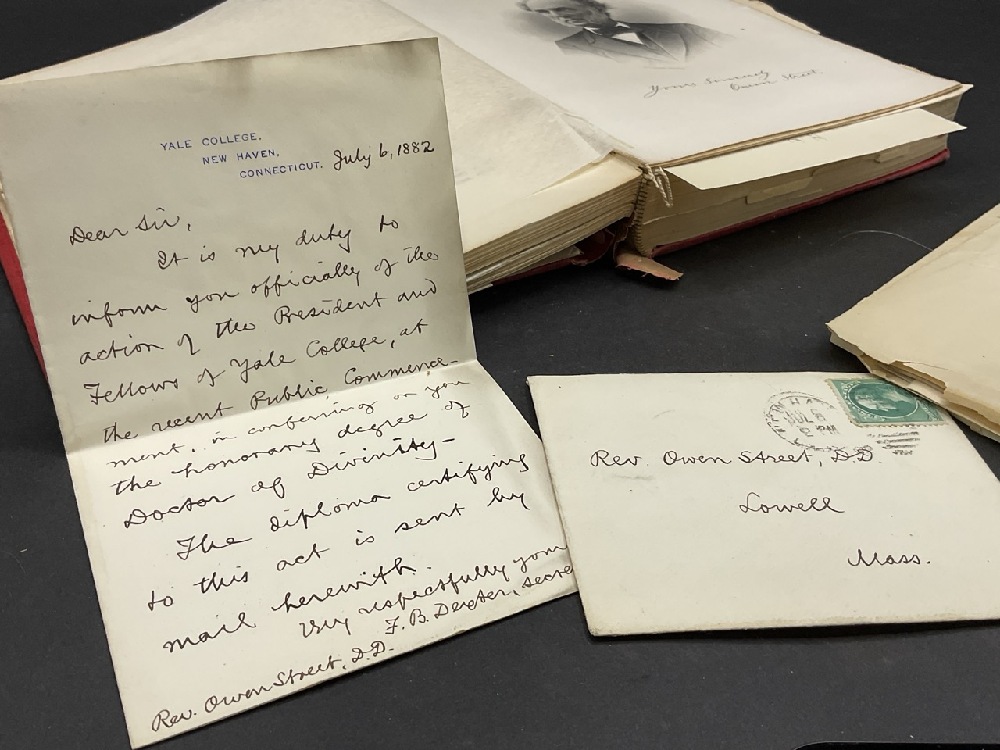 YALE COLLEGE.
NEW HAVEN,
CONNECTICUT. July 6, 1882
Dear Sir,
It is my duty to
inform you officially of the
action of the President and
Fellows of Yale College, at
the recent Public Commence-
ment, in conferring on you
the honorary degree of
Doctor of Divinity—
The diploma certifying
to this act is sent by
mail herewith.
Very respectfully your
F. B. Dexter, secre
Rev. Owen Street, D.D.
Yours Sincerely
Owen Street.
JUL 6
PM
Rev. Owen Street, D.D.
Lowell
Mass.